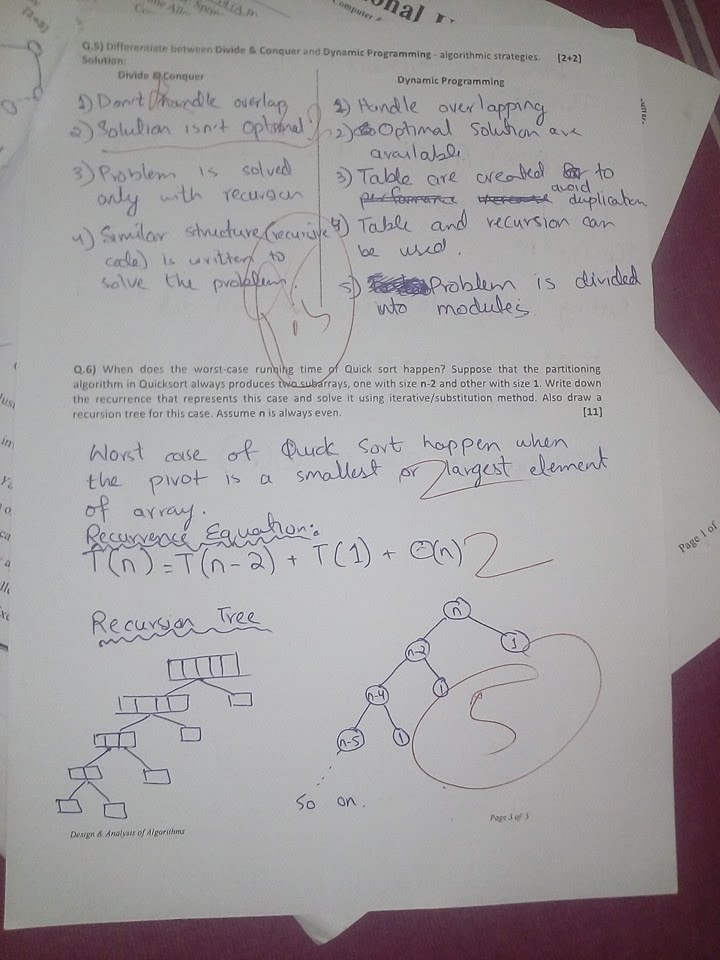 Computer
Q.5) Differentiate between Divide & Conquer and Dynamic Programming - algorithmic strategies. [2+2]
Solution:
Divide & Conquer
1) Don't handle overlap
2) Solution isn't Optional
3) Problem is solved
only with recursion
4) Similar structure (recursive
code) is written to
solve the problem.
Dynamic Programming
1) Handle overlapping
2) Optimal Solution are
available.
3) Table are created to
avoid
duplication
4) Table and recursion can
be used.
5) Problem is divided
into modules.
Q.6) When does the worst-case running time of Quick sort happen? Suppose that the partitioning
algorithm in Quicksort always produces two subarrays, one with size n-2 and other with size 1. Write down
the recurrence that represents this case and solve it using iterative/substitution method. Also draw a
recursion tree for this case. Assume n is always even. [11]
Worst case of Quick Sort happen when
the pivot is a smallest or largest element
2
of array.
Recurrence Equation:
T(n) = T(n-2) + T(1) + Θ(n) 2
Recursion Tree
n
n-2 1
n-4 1
n-5 1
5
So on.
Design & Analysis of Algorithms
Page 3 of 5
Page 1 of